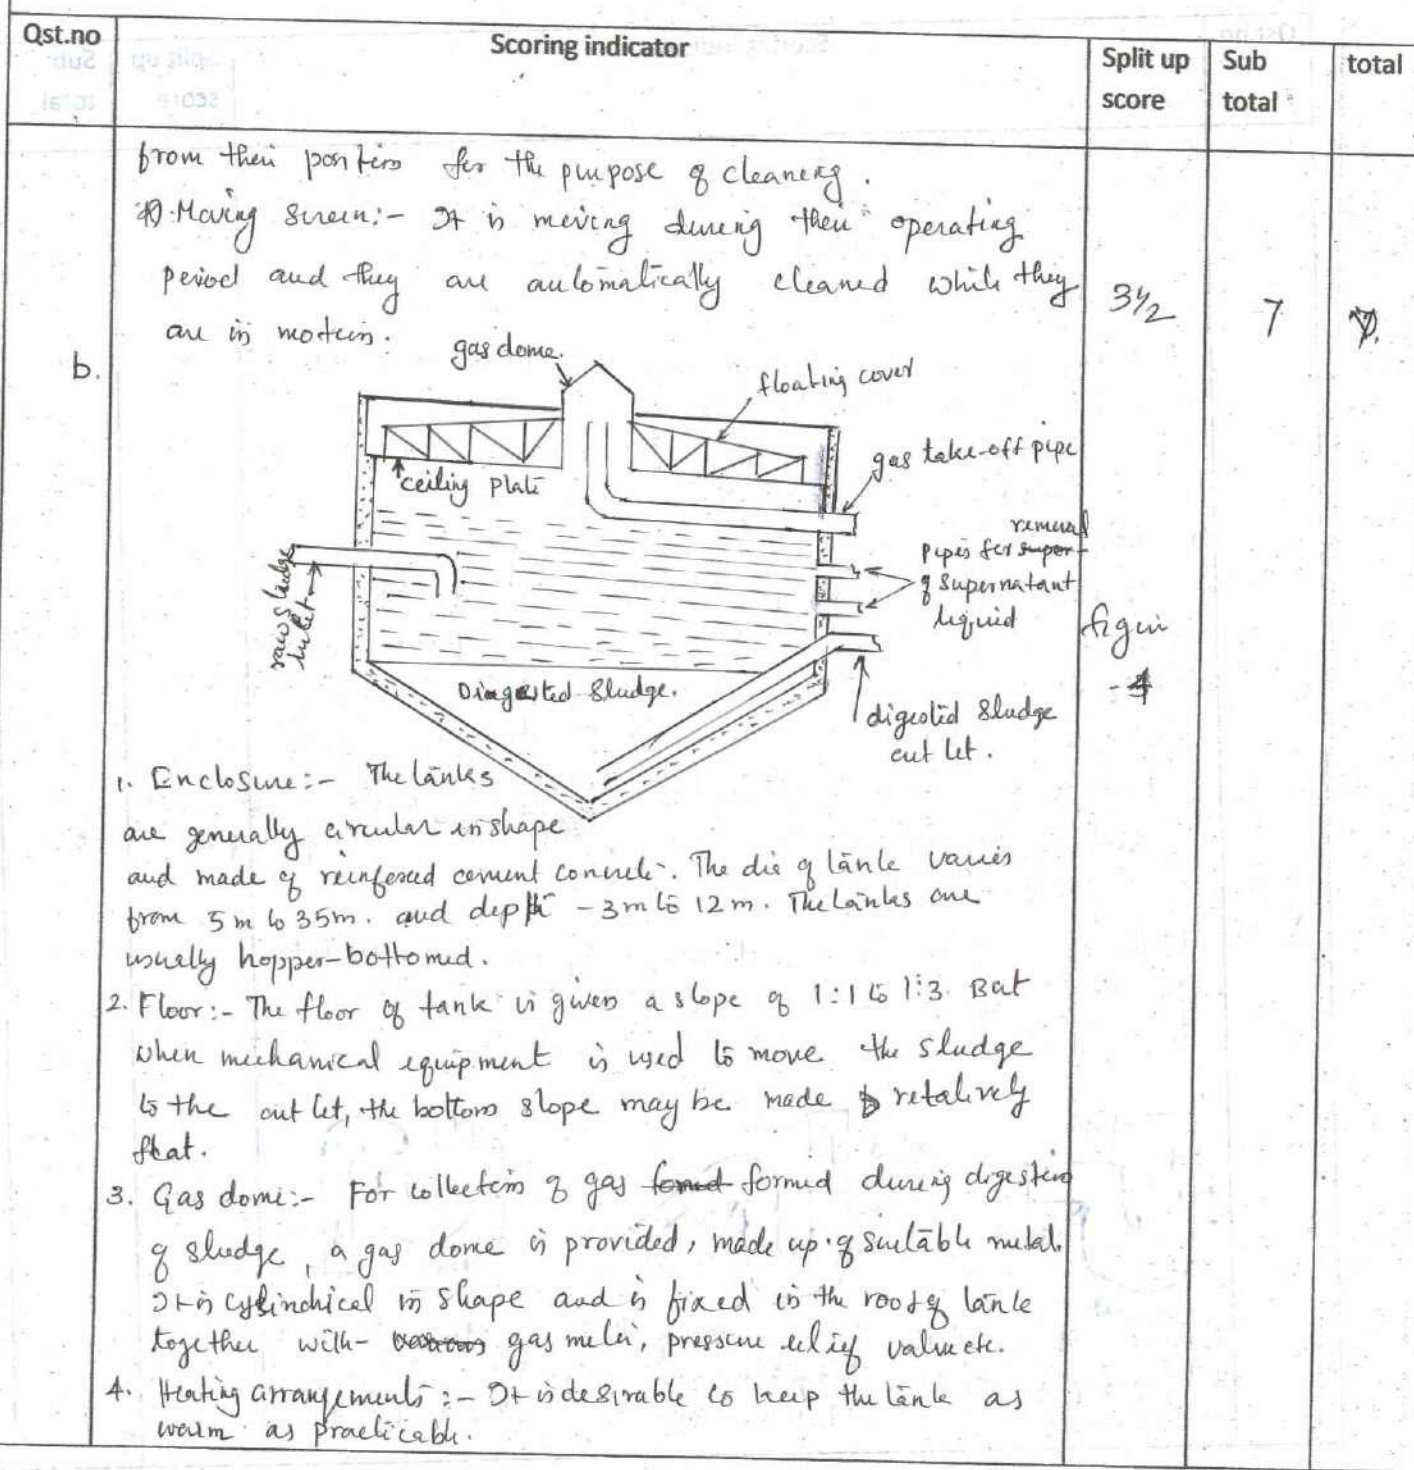 Qst.no
Scoring indicator
Split up score
Sub total
total
from their position for the purpose of cleaning.
Moving screen:- It is moving during their operating
period and they are automatically cleaned while they
are in motion.
3½
7
7.
b.
gas dome.
floating cover
gas take-off pipe
ceiling plate
removal
pipes for super-
of supernatant
liquid
raw sludge
inlet
figure
-4
Digested Sludge.
digested sludge
out let.
1. Enclosure:- The tanks
are generally circular in shape
and made of reinforced cement concrete. The dia of tank varies
from 5m to 35m. and depth - 3m to 12m. The tanks are
usually hopper-bottomed.
2. Floor:- The floor of tank is given a slope of 1:1 to 1:3. But
when mechanical equipment is used to move the sludge
to the out let, the bottom slope may be made relatively
flat.
3. Gas dome:- For collection of gas formed formed during digestion
of sludge, a gas dome is provided, made up of suitable metal.
It is cylindrical in shape and is fixed in the roof of tank
together with gas meter, pressure relief valve etc.
4. Heating arrangements:- It is desirable to keep the tank as
warm as practicable.